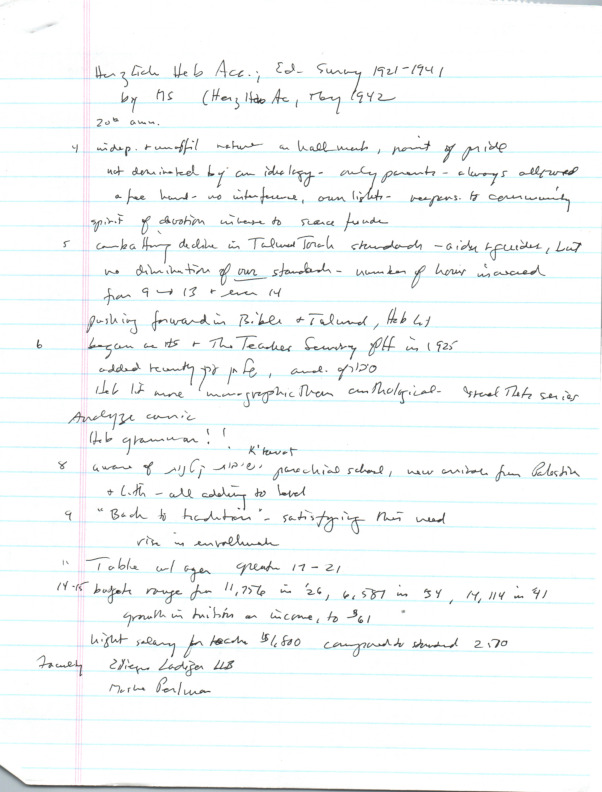 Herzliah Heb Acc.; Ed. Survey 1921-1941
by MS (Herz Heb Ac, May 1942
20th ann.
4 indep. + unaffil nature a hallmark, point of pride
not dominated by an ideology - only parents - always allowed
a free hand - no interference, own lights - respons. to community
spirit of devotion to secure funds
5 combatting decline in Talmud Torah standards - aides + guides, but
no diminution of our standards - number of hours increased
from 9 → 13 + even 14
pushing forward in Bible + Talmud, Heb lit
6 began as HS + The Teacher Seminary off in 1925
added recently
Heb lit more monographic than anthological - series
Analyze
Heb grammar!!
K'tavot
8 aware of parochial school, new arrivals from Palestine
+ Lith - all adding to level
9 "Back to tradition" - satisfying this need
rise in enrollment
11 Table w/ ages greater 17-21
14-15 budgets range from 11,756 in '26, 6,587 in '34, 14,114 in '41
growth in tuition as income, to $61
highest salary for teacher $1,800 compared to standard
Faculty
Moshe Perlman